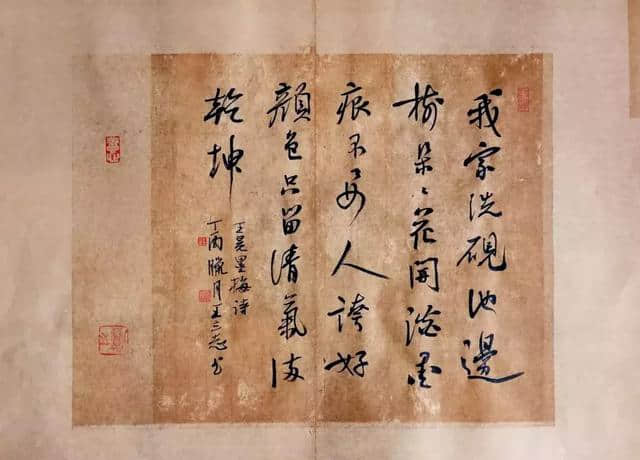 我家洗硯池邊
樹朵々花開淡墨
痕不要人誇好
顏色只留清氣滿
乾坤
王冕墨梅诗
丁酉臘月王三志书